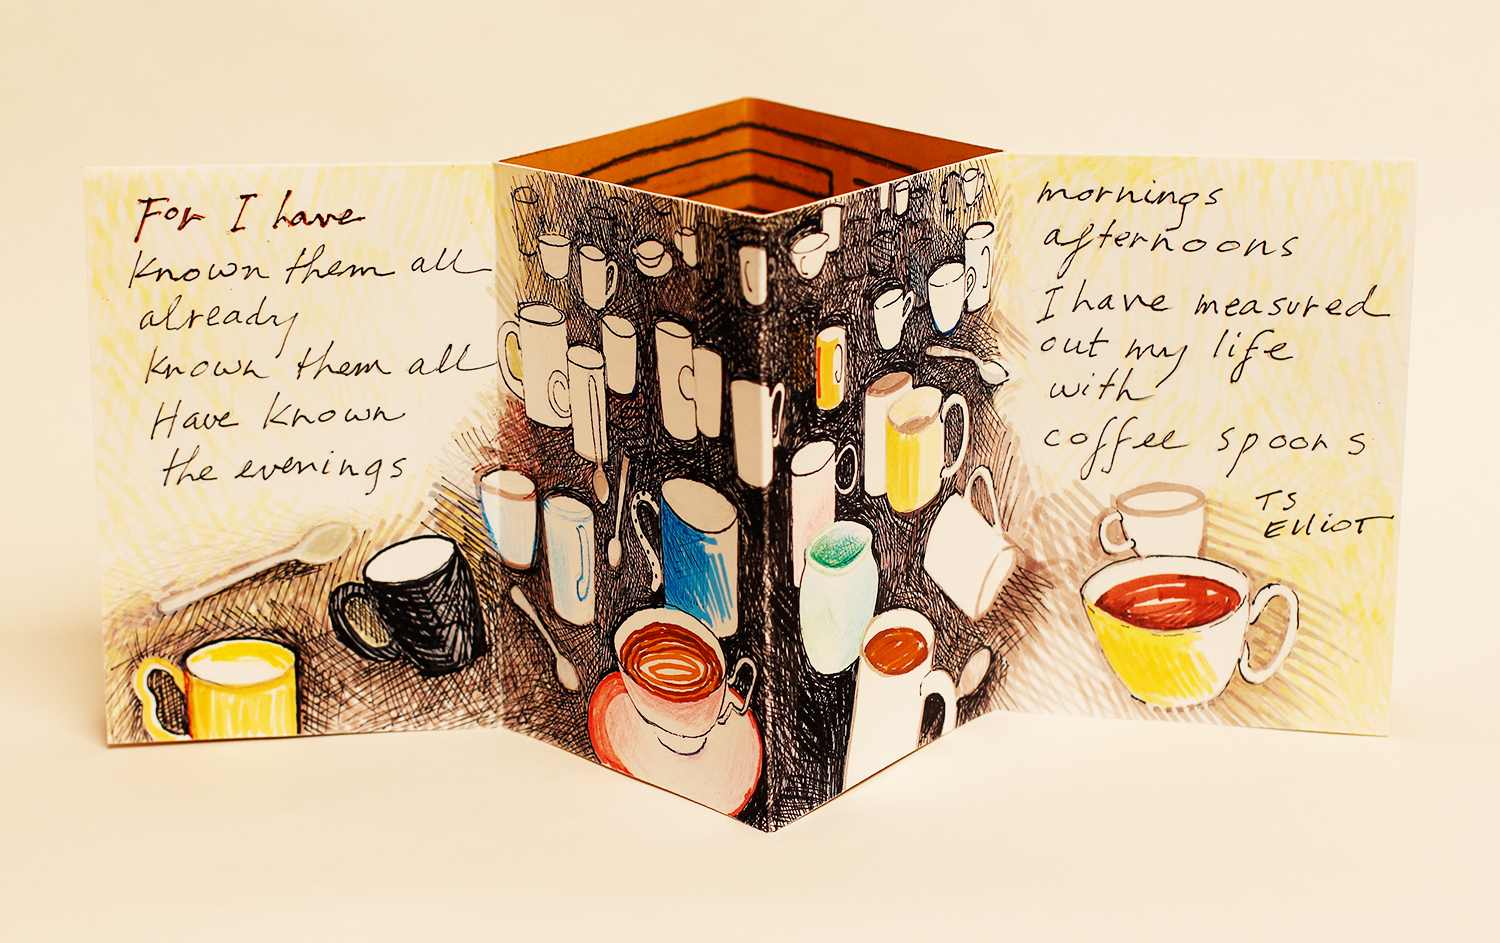 For I have
known them all
already
known them all
Have known
the evenings
mornings
afternoons
I have measured
out my life
with
coffee spoons
TS
ElliOT